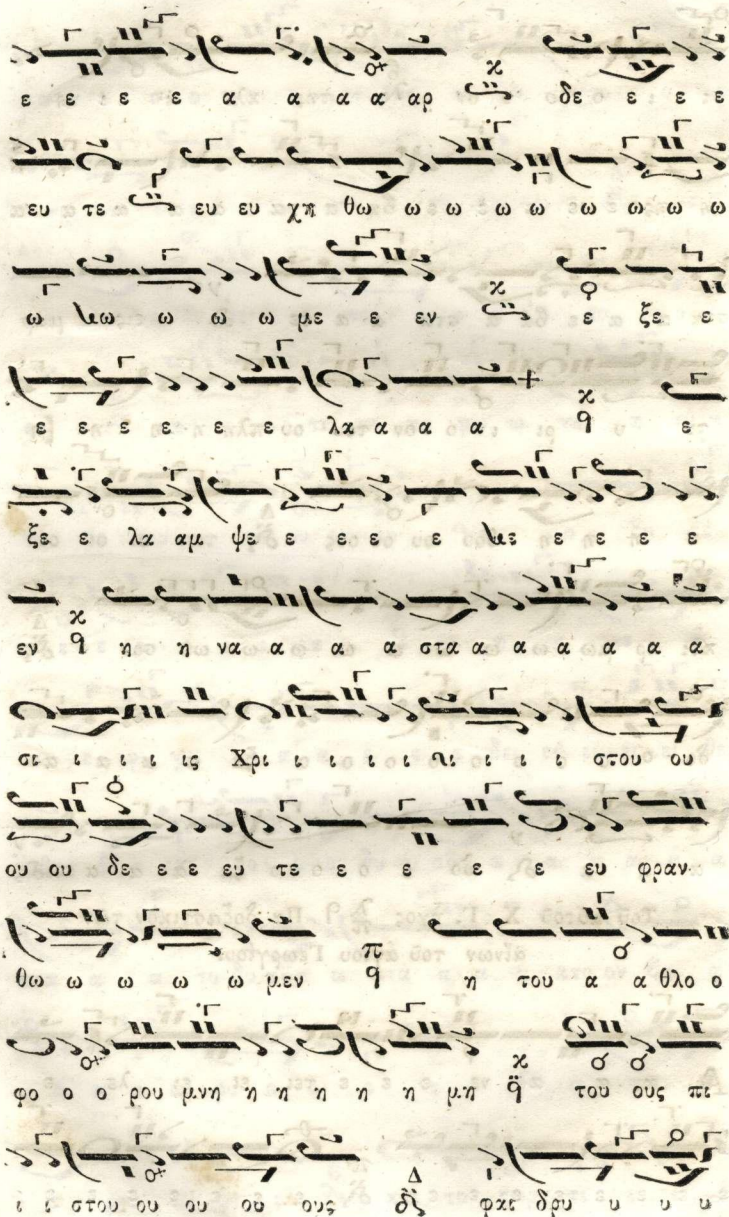 ε ε ε ε ε α α α α αρ δε ε ε ε ε
ευ τε ευ ευ χη θω ω ω ω ω ω ω ω ω
ω ω ω ω ω με ε εν ε ξε ε
ε ε ε ε ε ε λα α α α ε
ξε ε λα αμ ψε ε ε ε ε ε ε ε ε ε
εν η η να α α α στα α α α α α α
σι ι ι ι ις Χρι ι ι ι ι ι ι ι ι στου ου
ου ου δε ε ε ευ τε ε ε ε ε ε ευ φραν
θω ω ω ω ω μεν η του α α θλο ο
φο ο ο ρου μνη η η η η η μη του ους πι
ι ι στου ου ου ου ους φαι δρυ υ υ υ